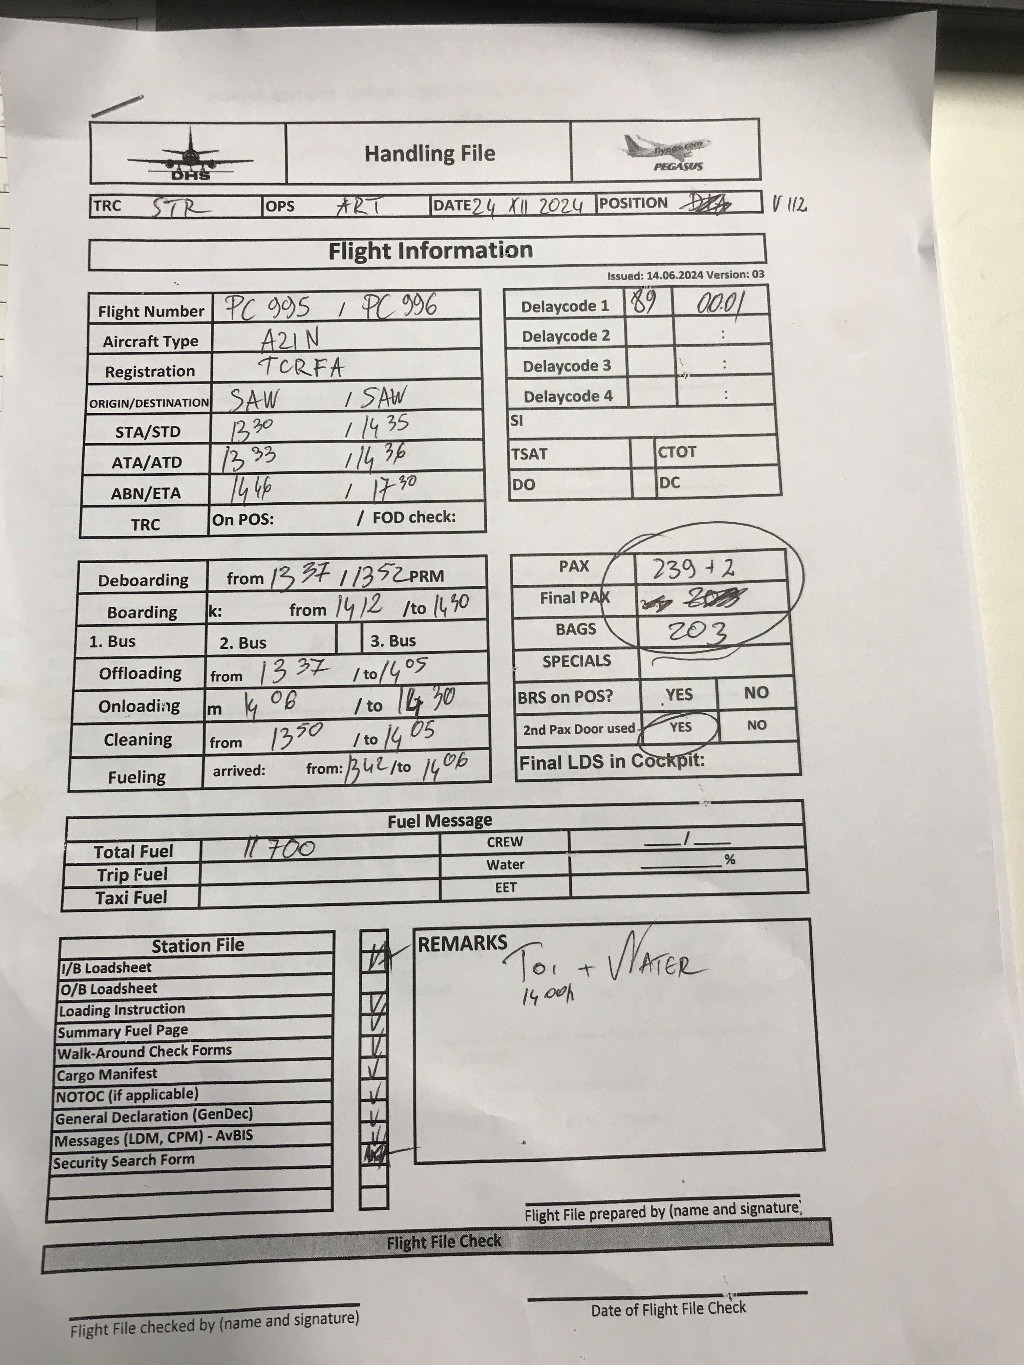 DHS
Handling File
flypgs.com
PEGASUS
TRC STR OPS ART DATE 24 XII 2024 POSITION V 112
Flight Information
Issued: 14.06.2024 Version: 03
Flight Number PC 995 / PC 996
Aircraft Type A21N
Registration TCRFA
ORIGIN/DESTINATION SAW / SAW
STA/STD 13 30 / 14 35
ATA/ATD 13 33 / 14 36
ABN/ETA 14 46 / 17 30
TRC On POS: / FOD check:
Delaycode 1 89 00:01
Delaycode 2 :
Delaycode 3 :
Delaycode 4 :
SI
TSAT CTOT
DO DC
Deboarding from 13 37 / 1352 PRM
Boarding k: from 14 12 /to 14 30
1. Bus 2. Bus 3. Bus
Offloading from 13 37 / to 14 05
Onloading m 14 06 / to 14 30
Cleaning from 13 50 / to 14 05
Fueling arrived: from: 1342 /to 14 06
PAX 239 + 2
Final PAX
BAGS 203
SPECIALS
BRS on POS? YES NO
2nd Pax Door used YES NO
Final LDS in Cockpit:
Fuel Message
Total Fuel 11 700 CREW /
Trip Fuel Water %
Taxi Fuel EET
Station File
I/B Loadsheet
O/B Loadsheet
Loading Instruction
Summary Fuel Page
Walk-Around Check Forms
Cargo Manifest
NOTOC (if applicable)
General Declaration (GenDec)
Messages (LDM, CPM) - AvBIS
Security Search Form
REMARKS
TOI + WATER
14 00h
Flight File prepared by (name and signature)
Flight File Check
Flight File checked by (name and signature)
Date of Flight File Check